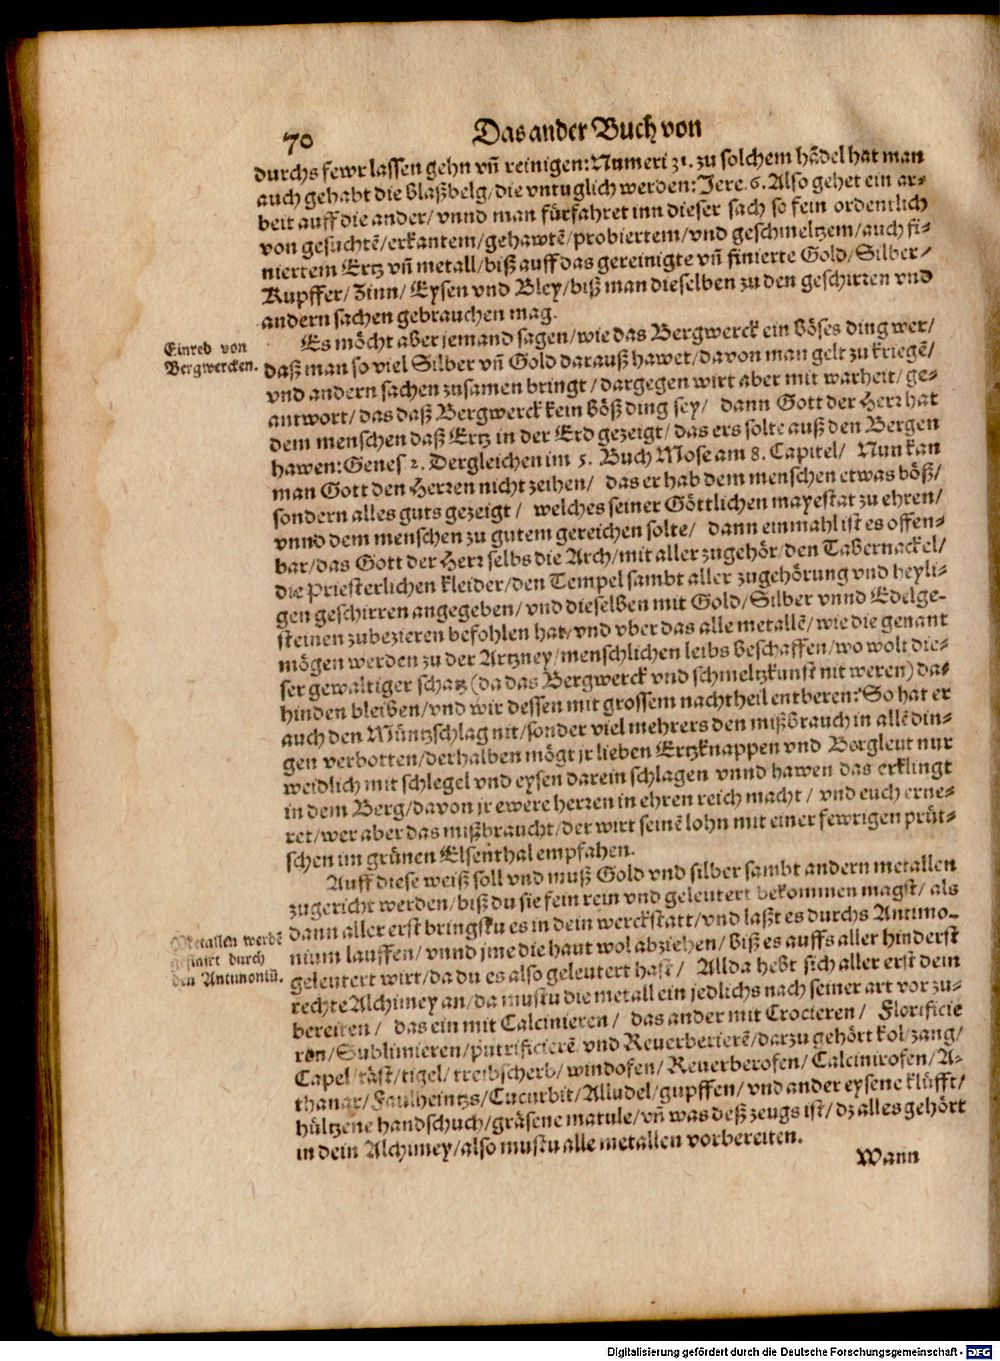 70
Das ander Buch von
durchs fewr lassen gehn vñ reinigen: Numeri 31. zu solchem hãdel hat man
auch gehabt die blaßbelg/ die vntuglich werden: Jere. 6. Also gehet ein ar-
beit auff die ander/ vnnd man fürfahret inn dieser sach so fein ordenlich
von gesuchtẽ/ erkantem/ gehawtẽ/ probiertem/ vnd geschmeltzem/ auch fi-
niertem Ertz vñ metall/ biß auff das gereinigte vñ finierte Gold/ Silber/
Kupffer/ Zinn/ Eysen vnd Bley/ biß man dieselben zu den geschirren vnd
andern sachen gebrauchen mag.
Einred von
Bergwercken.
Es möcht aber jemand sagen/ wie das Bergwerck ein böses ding wer/
daß man so viel Silber vñ Gold darauß hawet/ davon man gelt zu kriegẽ/
vnd andern sachen zusamen bringt/ dargegen wirt aber mit warheit/ ge-
antwort/ das daß Bergwerck kein böß ding sey/ dann Gott der Herr hat
dem menschen daß Ertz in der Erd gezeigt/ das ers solte auß den Bergen
hawen: Genes 2. Dergleichen im 5. Buch Mose am 8. Capitel/ Nun kan
man Gott den Herren nicht zeihen/ das er hab dem menschen etwas böß/
sondern alles guts gezeigt/ welches seiner Göttlichen mayestat zu ehren/
vnnd dem menschen zu gutem gereichen solte/ dann einmahl ist es offen-
bar/ das Gott der Herr selbs die Arch/ mit aller zugehör/ den Tabernackel/
die Priesterlichen kleider/ den Tempel sambt aller zugehörung vnd heyli-
gen geschirren angegeben/ vnd dieselben mit Gold/ Silber vnnd Edelge-
steinen zubezieren befohlen hat/ vnd vber das alle metallẽ/ wie die genant
mögen werden zu der Artzney/ menschlichen leibs beschaffen/ wo wolt die-
ser gewaltiger schatz (da das Bergwerck vnd schmeltzkunst nit weren) da-
hinden bleiben/ vnd wir dessen mit grossem nachtheil entberen? So hat er
auch den Müntzschlag nit/ sonder viel mehrers den mißbrauch in allẽ din-
gen verbotten/ derhalben mögt jr lieben Ertzknappen vnd Bergleut nur
weidlich mit schlegel vnd eysen darein schlagen vnnd hawen das erklingt
in dem Berg/ davon jr ewere herren in ehren reich macht/ vnd euch erne-
ret/ wer aber das mißbraucht/ der wirt seinẽ lohn mit einer fewrigen prüt-
schen im grünen Elsenthal empfahen.
Auff diese weiß soll vnd muß Gold vnd silber sambt andern metallen
zugericht werden/ biß du sie fein rein vnd geleutert bekommen magst/ als
Metallen werdẽ
gefinirt durch
den Antimoniũ.
dann aller erst bringstu es in dein werckstatt/ vnd laßt es durchs Antimo-
nium lauffen/ vnnd jme die haut wol abziehen/ biß es auffs aller hinderst
geleutert wirt/ da du es also geleutert hast/ Allda hebt sich aller erst dein
rechte Alchimey an/ da mustu die metall ein jedlichs nach seiner art vor zu-
bereiten/ das ein mit Calcinieren/ das ander mit Crocieren/ Florificie
ren/ Sublimieren/ putrificierẽ vnd Reuerberierẽ/ darzu gehört kol/ zang/
Capel/ räst/ tigel/ treibscherb/ windofen/ Reuerberofen/ Calcinirofen/ A-
thanar/ Faulheintzs/ Cucurbit/ Alludel/ gupffen/ vnd ander eysene klüfft/
hültzene handschuch/ gräsene matule/ vñ was deß zeugs ist/ dz alles gehört
in dein Alchimey/ also mustu alle metallen vorbereiten.
Wann
Digitalisierung gefördert durch die Deutsche Forschungsgemeinschaft - DFG